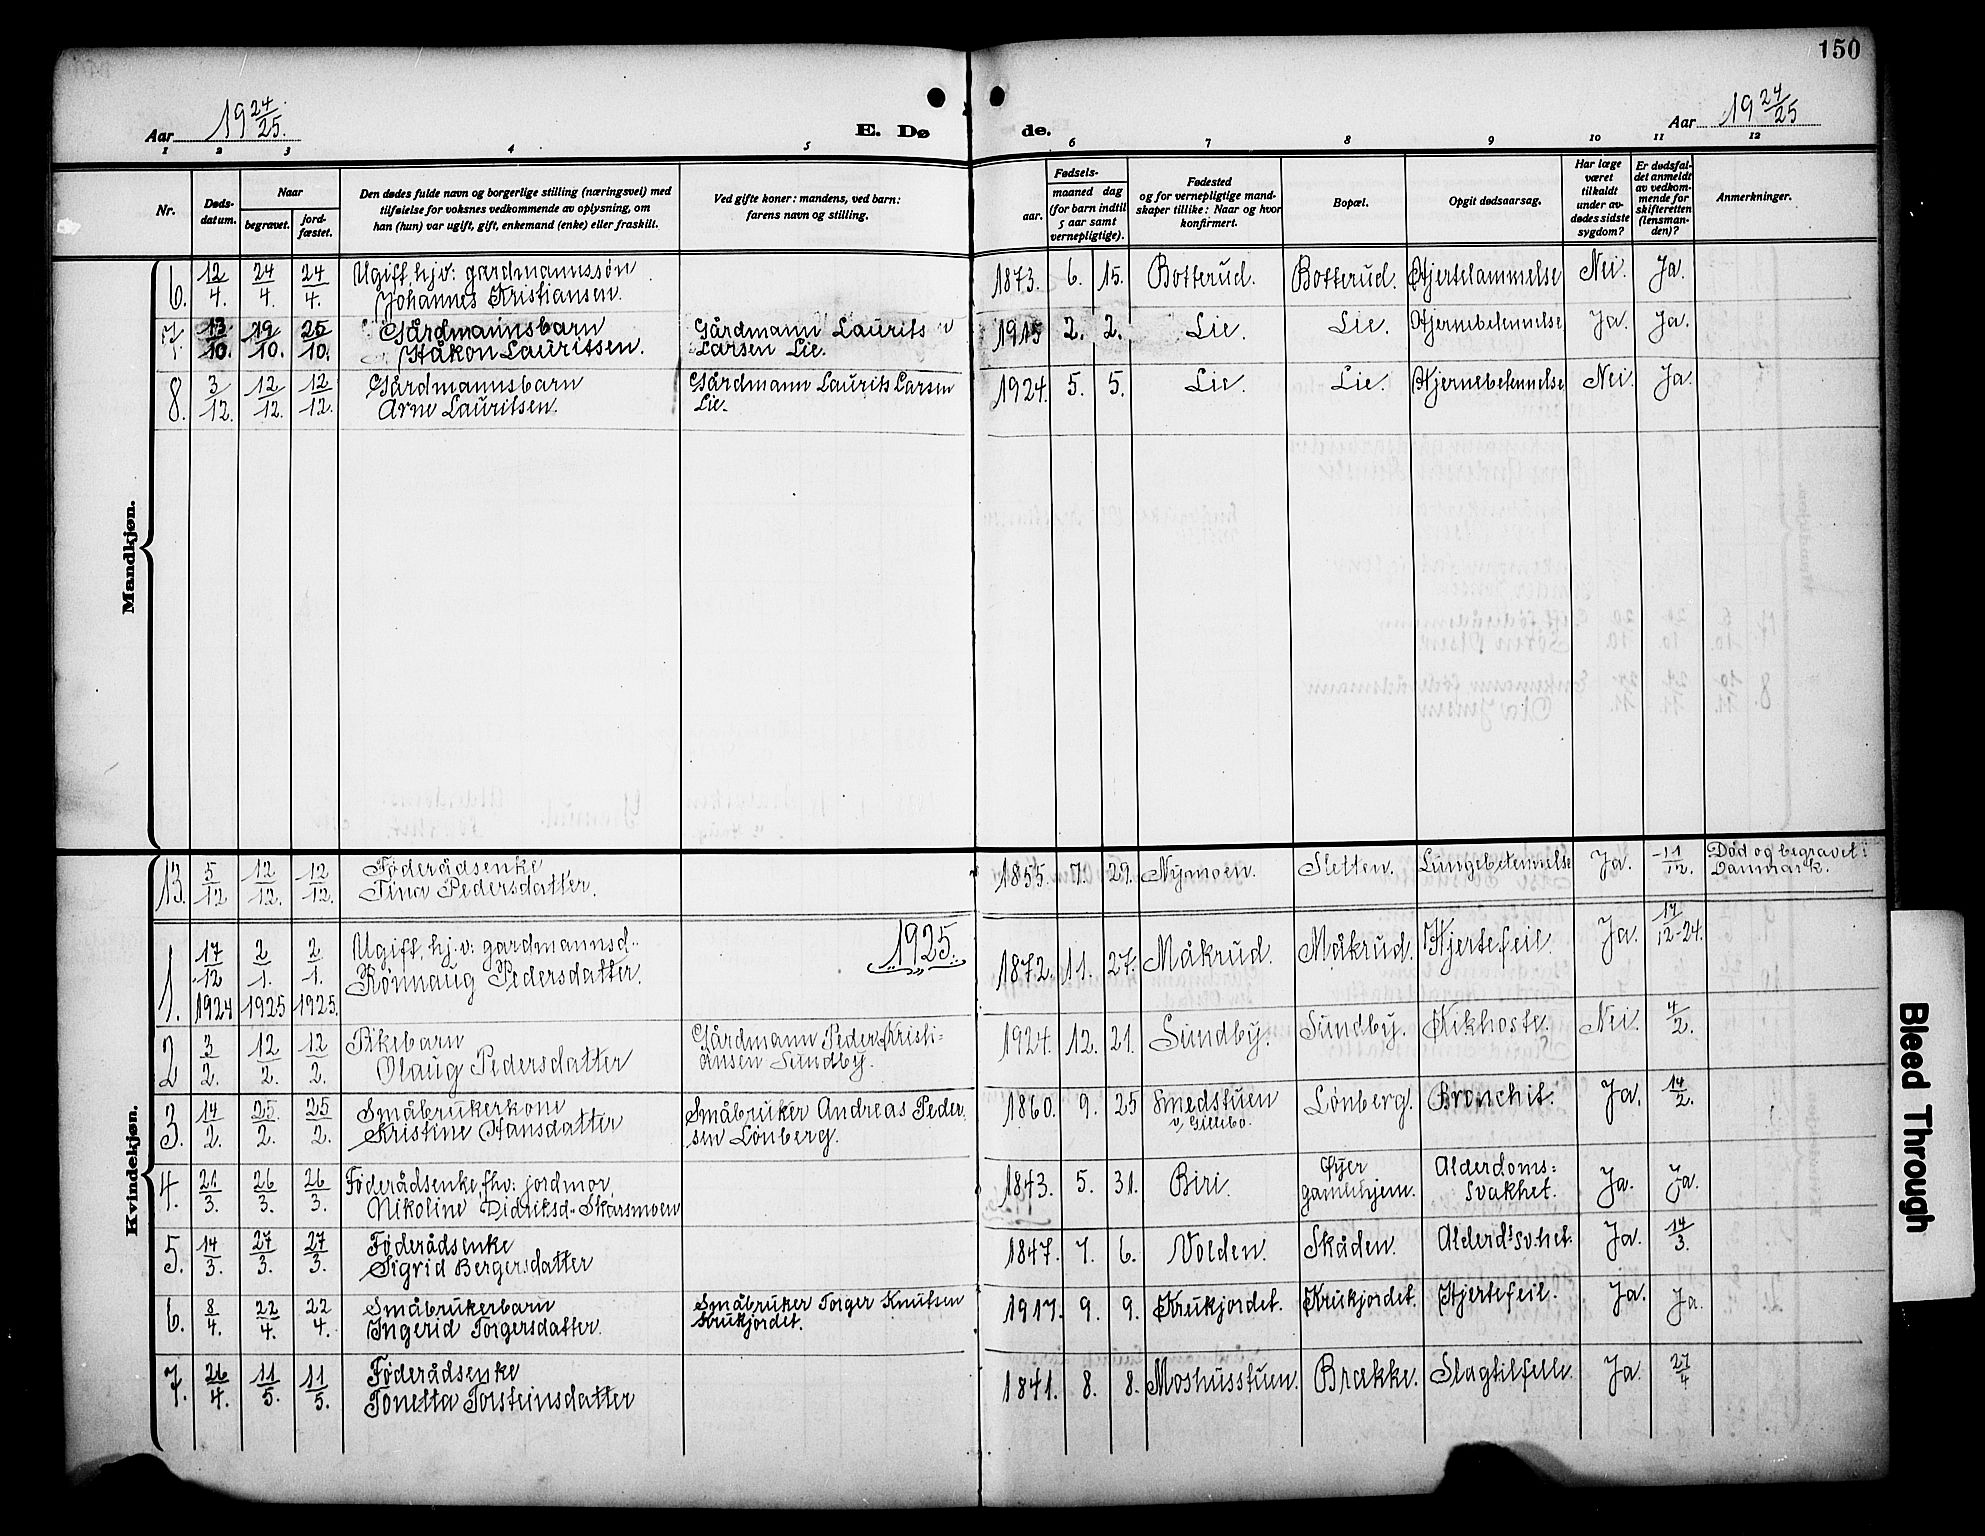 150
Aar 19 24/25.
E. Dø
de.
Aar 19 24/25
1 2 3 4 5 6 7 8 9 10 11 12
Nr.
Døds-
datum.
Naar
begravet.
jord-
fæstet.
Den dødes fulde navn og borgerlige stilling (næringsvei) med
tilføielse for voksnes vedkommende av oplysning, om
han (hun) var ugift, gift, enkemand (enke) eller fraskilt.
Ved gifte koner: mandens, ved barn:
farens navn og stilling.
Fødsels-
aar.
maaned dag
(for barn indtil
5 aar samt
vernepligtige).
Fødested
og for vernepligtige mand-
skaper tillike: Naar og hvor
konfirmert.
Bopæl.
Opgit dødsaarsag.
Har læge
været
tilkaldt
under av-
dødes sidste
sygdom?
Er dødsfal-
det anmeldt
av vedkom-
mende for
skifteretten
(lensman-
den)?
Anmerkninger.
Mandkjøn.
6. 12/4. 24/4. 24/4. Ugift, hjv: gardmannssøn
Johannes Kristiansen.
1873. 6. 15. Botterud. Botterud. Hjertelammelse Nei. Ja.
7. 13/10. 19/10. 25/10. Gårdmannsbarn
Håkon Lauritssen.
Gårdmann Laurits
Larsen Lie.
1915 2. 2. Lie. Lie. Hjernebetennelse Ja. Ja.
8. 3/12. 12/12. 12/12. Gårdmannsbarn
Arne Lauritsen.
Gårdmann Laurits Larsen
Lie.
1924. 5. 5. Lie. Lie. Hjernebetennelse Nei. Ja.
Kvindekjøn.
13. 5/12 12/12. 12/12. Föderådsenke
Tina Pedersdatter.
1855. 7. 29. Nymoen. Sletten. Lungebetennelse Ja. 11/12. Död og begravet i
Danmark.
1925.
1. 17/12 1924 2/1. 1925 2/1. 1925. Ugift, hj.v: gardmannsd.
Rönnaug Pedersdatter.
1872. 11. 27. Måkrud. Måkrud. Hjertefeil. Ja. 17/12-24.
2 3/2. 12/2. 12/2. Pikebarn
Olaug Pedersdatter
Gårdmann Peder Kristi-
ansen Sundby.
1924. 12. 21. Sundby. Sundby. Kikhoste. Nei. 4/2.
3. 14/2. 25/2. 25/2. Småbrukerkone
Kristine Hansdatter
Småbruker Andreas Peder
sen Lönberg.
1860. 9. 25 Smedstuen
v. Gillebo.
Lönberg. Bronchit. Ja. 14/2.
4. 21/3. 26/3. 26/3. Föderådsenke, fhv: jordmor
Nikoline Didriksd. Skarsmoen
1843. 5. 31. Biri. Øyer
gamlehjem.
Alderdoms:
svakhet.
Ja. Ja.
5. 14/3. 27/3. 27/3. Föderådsenke
Sigrid Bergersdatter
1847. 7. 6. Volden. Skåden. Alderd:sv.het. Ja. 14/3.
6. 8/4. 22/4. 22/4. Småbrukerbarn
Ingerid Torgersdatter.
Småbruker Torger Knutsen
Krukjordet.
1917. 9. 9. Krukjordet. Krukjordet. Hjertefeil. Ja. Ja.
7. 26/4. 11/5. 11/5. Föderådsenke
Tonetta Torsteinsdatter
1841. 8. 8. Moshusstuen. Brække. Slagtilfelle. Ja. 27/4
Bleed Through